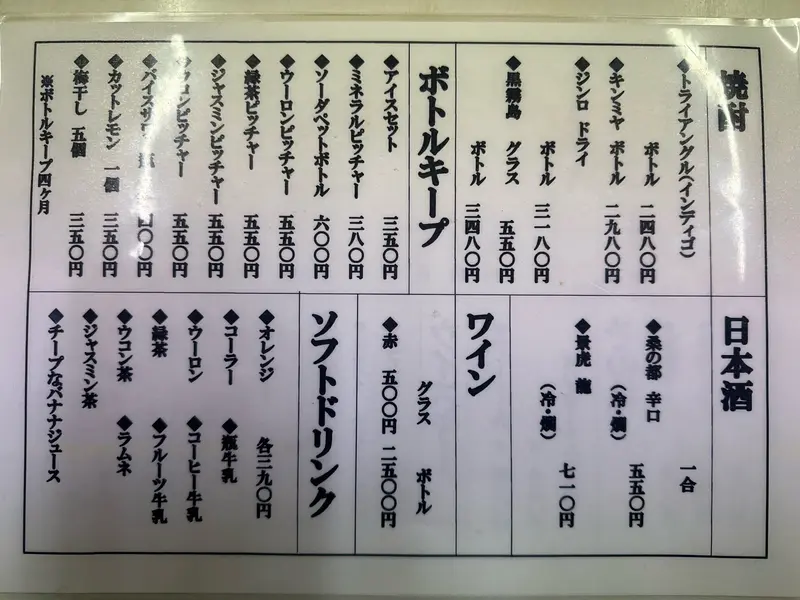 焼酎
◆トライアングル(インディゴ)
ボトル 二四八〇円
◆キンミヤ ボトル 二九八〇円
◆ジンロ ドライ
ボトル 三一八〇円
◆黒霧島 グラス 五五〇円
ボトル 三四八〇円
ボトルキープ
◆アイスセット 三五〇円
◆ミネラルピッチャー 三八〇円
◆ソーダペットボトル 六〇〇円
◆ウーロンピッチャー 五五〇円
◆緑茶ピッチャー 五五〇円
◆ジャスミンピッチャー 五五〇円
◆ウコンピッチャー 五五〇円
◆パイスサワー 四〇〇円
◆カットレモン 一個 三五〇円
◆梅干し 五個 三五〇円
※ボトルキープ四ケ月
日本酒
一合
◆桑の都 辛口
(冷・燗) 五五〇円
◆景虎 龍
(冷・燗) 七一〇円
ワイン
グラス ボトル
◆赤 五〇〇円 二五〇〇円
ソフトドリンク
◆オレンジ 各三九〇円
◆コーラー ◆瓶牛乳
◆ウーロン ◆コーヒー牛乳
◆緑茶 ◆フルーツ牛乳
◆ウコン茶 ◆ラムネ
◆ジャスミン茶
◆チープなバナナジュース